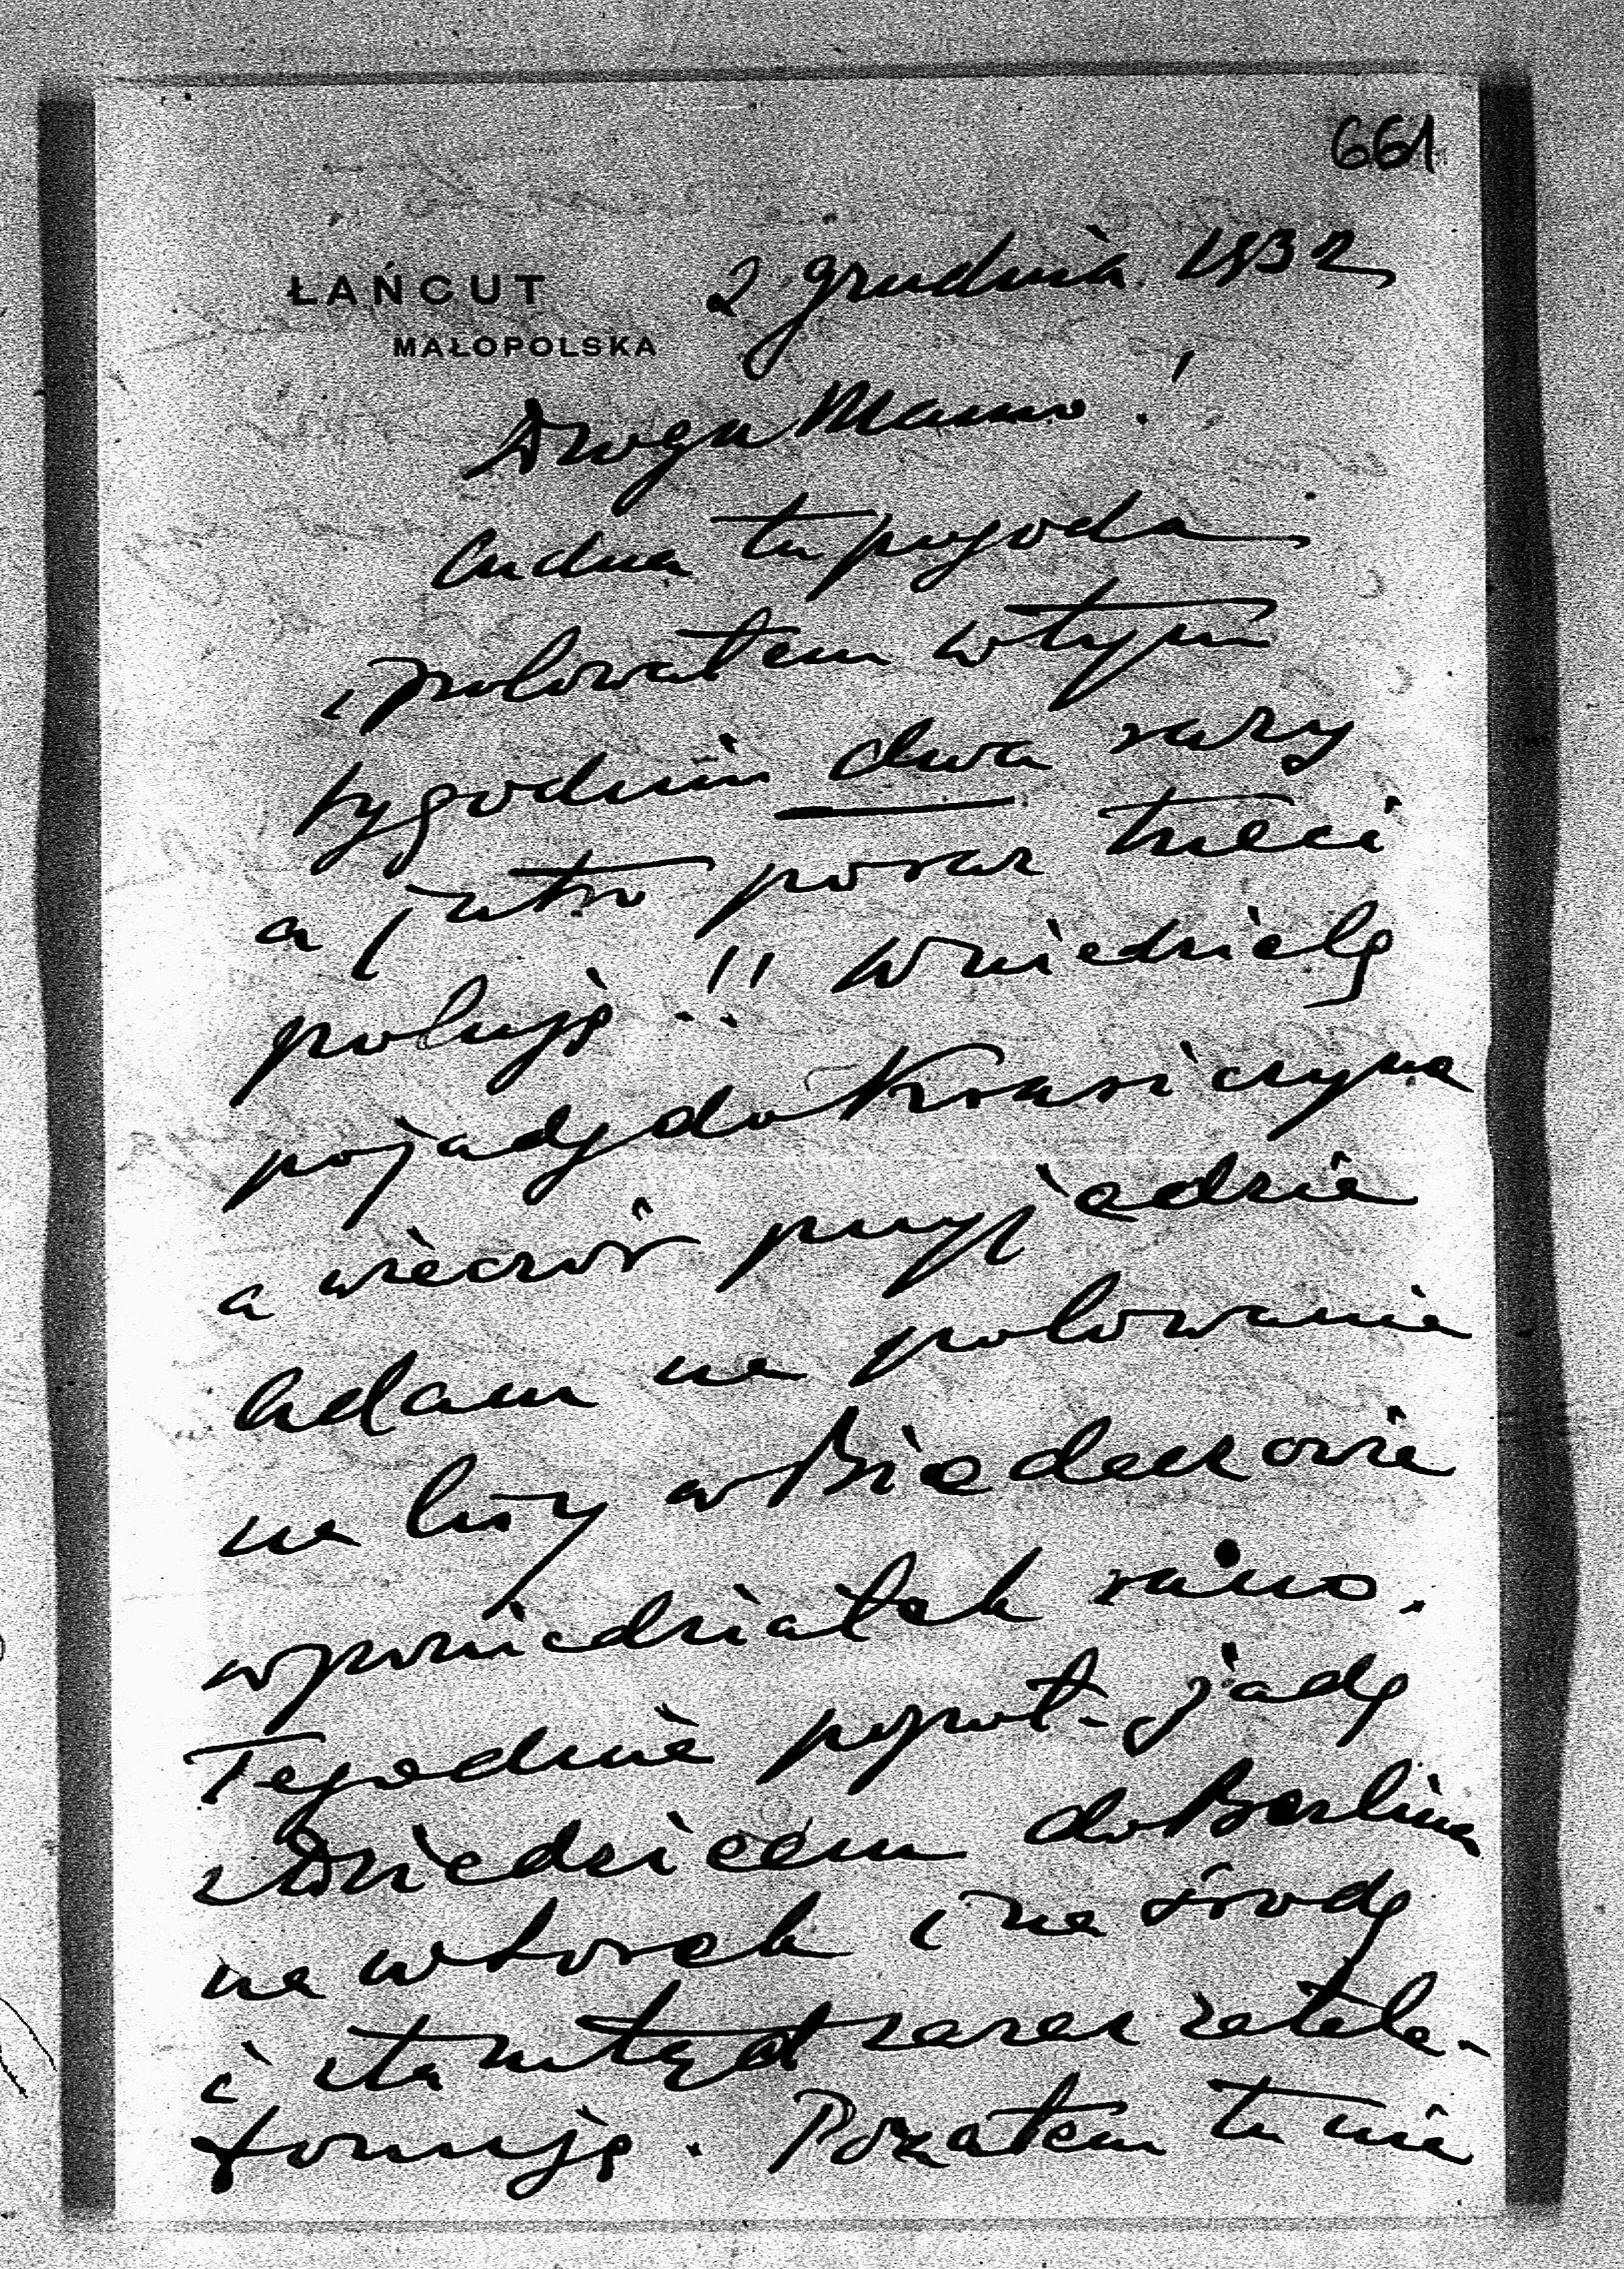 661
ŁAŃCUT
MAŁOPOLSKA
2 grudnia 1932
Droga Mamo!
Cudna tu pogoda
i polowałem w tym
tygodniu dwa razy
a jutro poraz trzeci
poluję!! W niedzielę
pojadę do Krasiczyna
a wieczór przyjedzie
Adam na polowanie
na lisy w Biedaczowie
w poniedziałek rano.
Tegodnie popoł. jadę
do Berlina
na wtorek i na środę
i stamtąd zaraz zatele-
fonuję. Pozatem tu nie